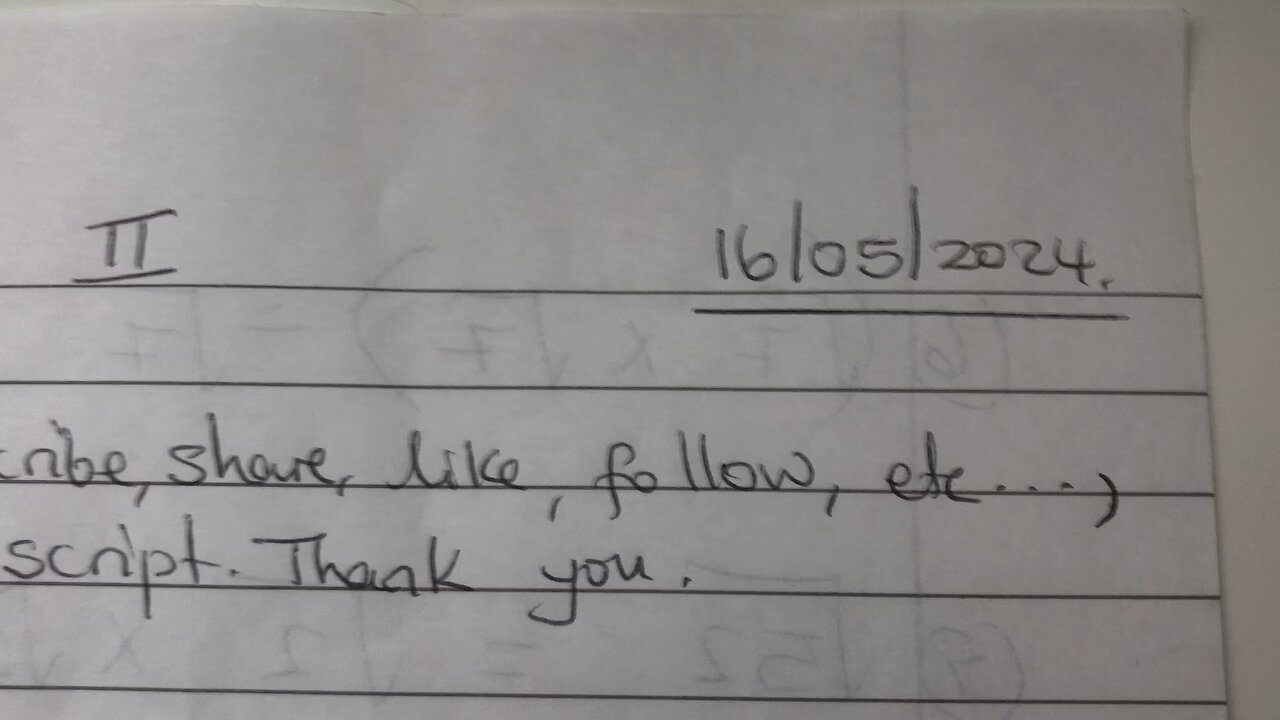 II 16/05/2024.
cribe, share, like, follow, etc....,
script. Thank you.